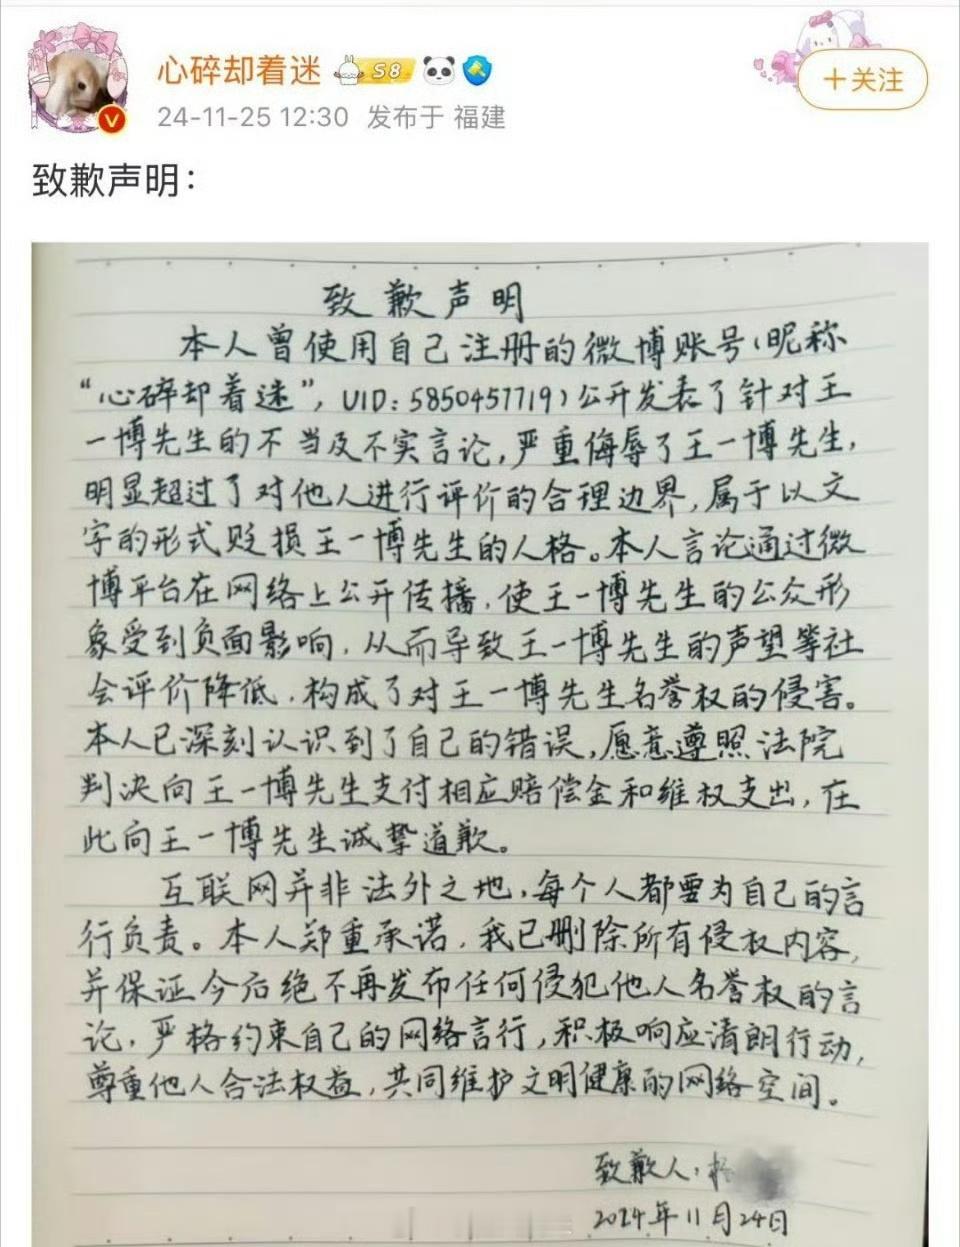 心碎却着迷 S8
+关注
24-11-25 12:30 发布于 福建
致歉声明：
致歉声明
本人曾使用自己注册的微博账号（昵称
“心碎却着迷”，UID：5850457719）公开发表了针对王
一博先生的不当及不实言论，严重侮辱了王一博先生，
明显超过了对他人进行评价的合理边界，属于以文
字的形式贬损王一博先生的人格。本人言论通过微
博平台在网络上公开传播，使王一博先生的公众形
象受到负面影响，从而导致王一博先生的声望等社
会评价降低，构成了对王一博先生名誉权的侵害。
本人已深刻认识到了自己的错误，愿意遵照法院
判决向王一博先生支付相应赔偿金和维权支出，在
此向王一博先生诚挚道歉。
互联网并非法外之地，每个人都要为自己的言
行负责。本人郑重承诺，我已删除所有侵权内容，
并保证今后绝不再发布任何侵犯他人名誉权的言
论，严格约束自己的网络言行，积极响应清朗行动，
尊重他人合法权益，共同维护文明健康的网络空间。
致歉人：
2024年11月24日